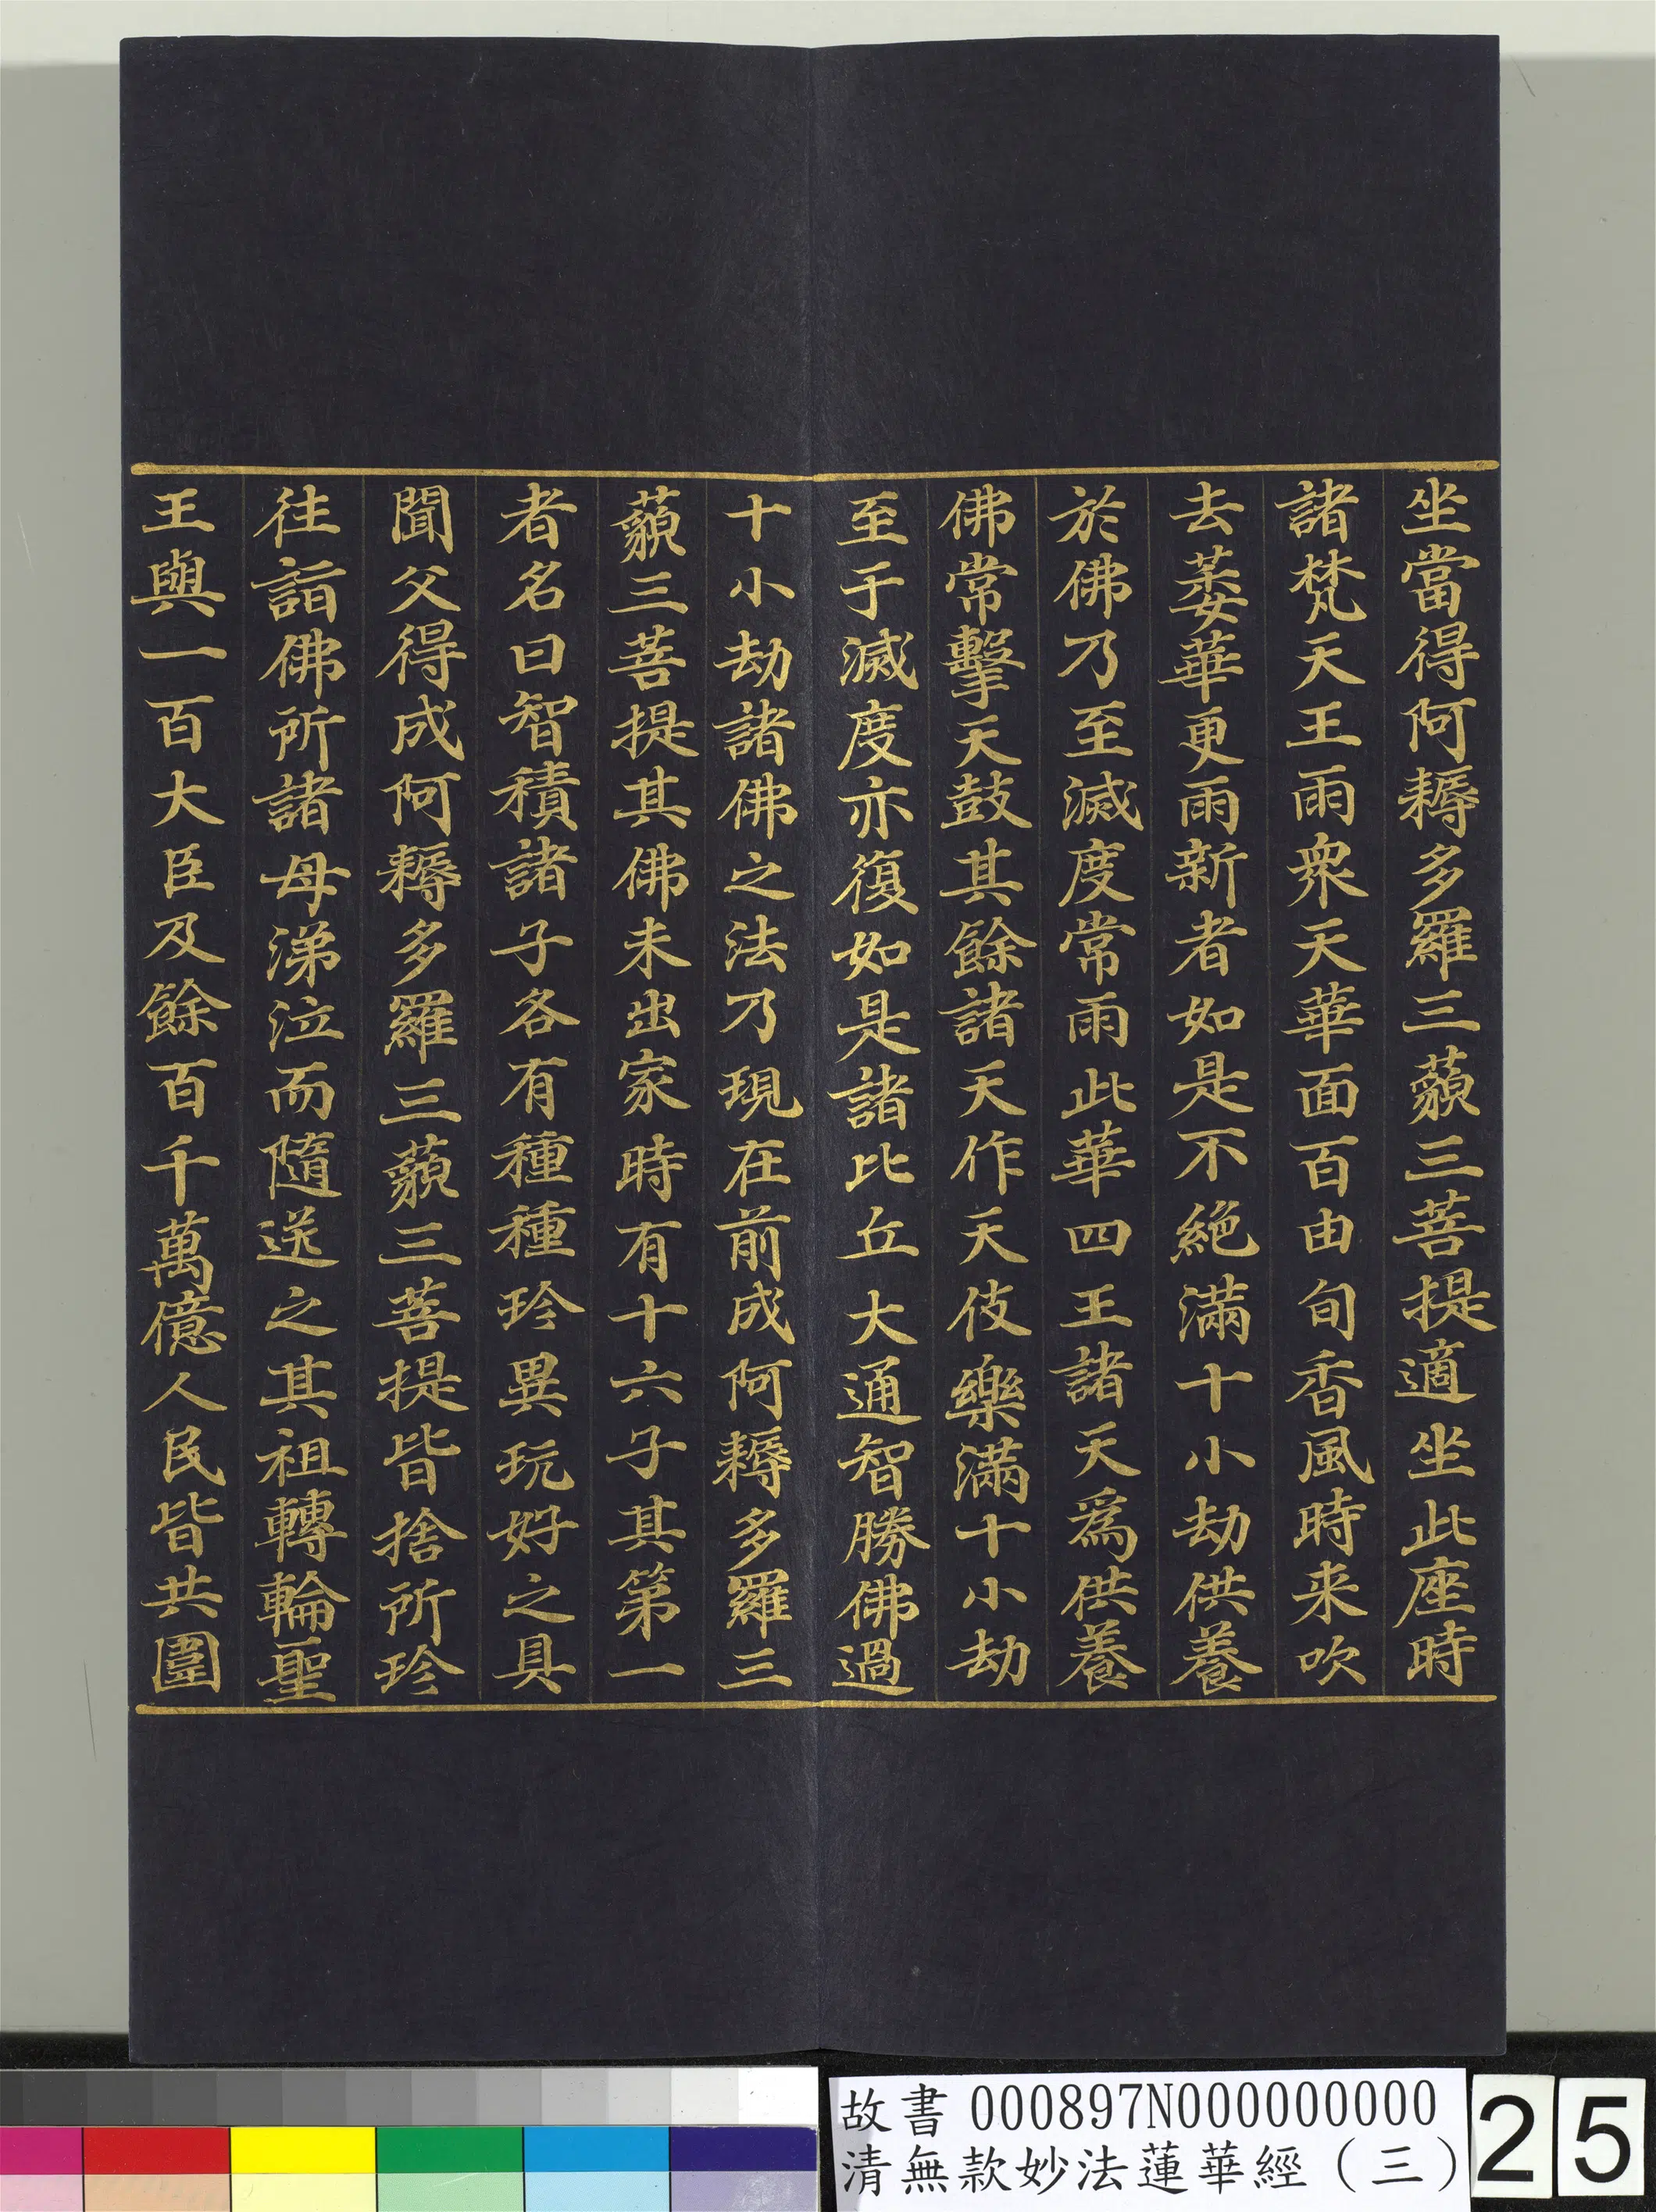 坐當得阿耨多羅三藐三菩提適坐此座時
諸梵天王雨衆天華面百由旬香風時来吹
去萎華更雨新者如是不絶滿十小劫供養
於佛乃至滅度常雨此華四王諸天爲供養
佛常擊天鼓其餘諸天作天伎樂滿十小劫
至于滅度亦復如是諸比丘大通智勝佛過
十小劫諸佛之法乃現在前成阿耨多羅三
藐三菩提其佛未出家時有十六子其第一
者名曰智積諸子各有種種珍異玩好之具
聞父得成阿耨多羅三藐三菩提皆捨所珍
往詣佛所諸母涕泣而隨送之其祖轉輪聖
王與一百大臣及餘百千萬億人民皆共圍
故書 000897N000000000
清無款妙法蓮華經（三）
25